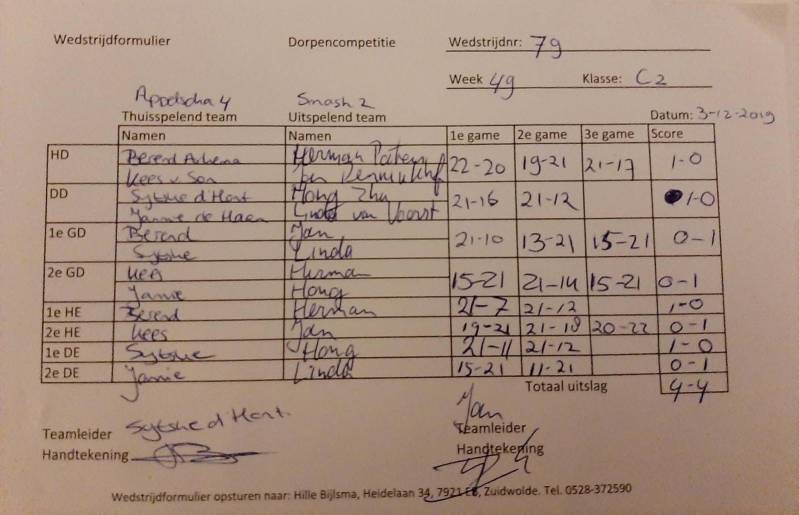 Wedstrijdformulier Dorpencompetitie Wedstrijdnr: 79
Week 49 Klasse: C2
Appelscha 4 Smash 2
Thuisspelend team Uitspelend team Datum: 3-12-2019
Namen Namen 1e game 2e game 3e game Score
HD Berend Herman 22-20 19-21 21-17 1-0
Kees v Son Jan
DD Sytske d'Hont Hong Zhu 21-16 21-12 1-0
Jannie de Haan Linda van Voorst
1e GD Berend Jan 21-10 13-21 15-21 0-1
Sytske Linda
2e GD Kees Herman 15-21 21-14 15-21 0-1
Jannie Hong
1e HE Berend Herman 21-7 21-12 1-0
2e HE Kees Jan 19-21 21-18 20-22 0-1
1e DE Sytske Hong 21-11 21-12 1-0
2e DE Jannie Linda 15-21 11-21 0-1
Totaal uitslag 4-4
Teamleider Sytske d'Hont. Jan Teamleider
Handtekening Handtekening
Wedstrijdformulier opsturen naar: Hille Bijlsma, Heidelaan 34, 7921 Zuidwolde. Tel. 0528-372590